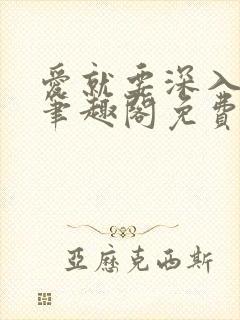 愛就要深入
筆趣閣免費
亞歷克西斯